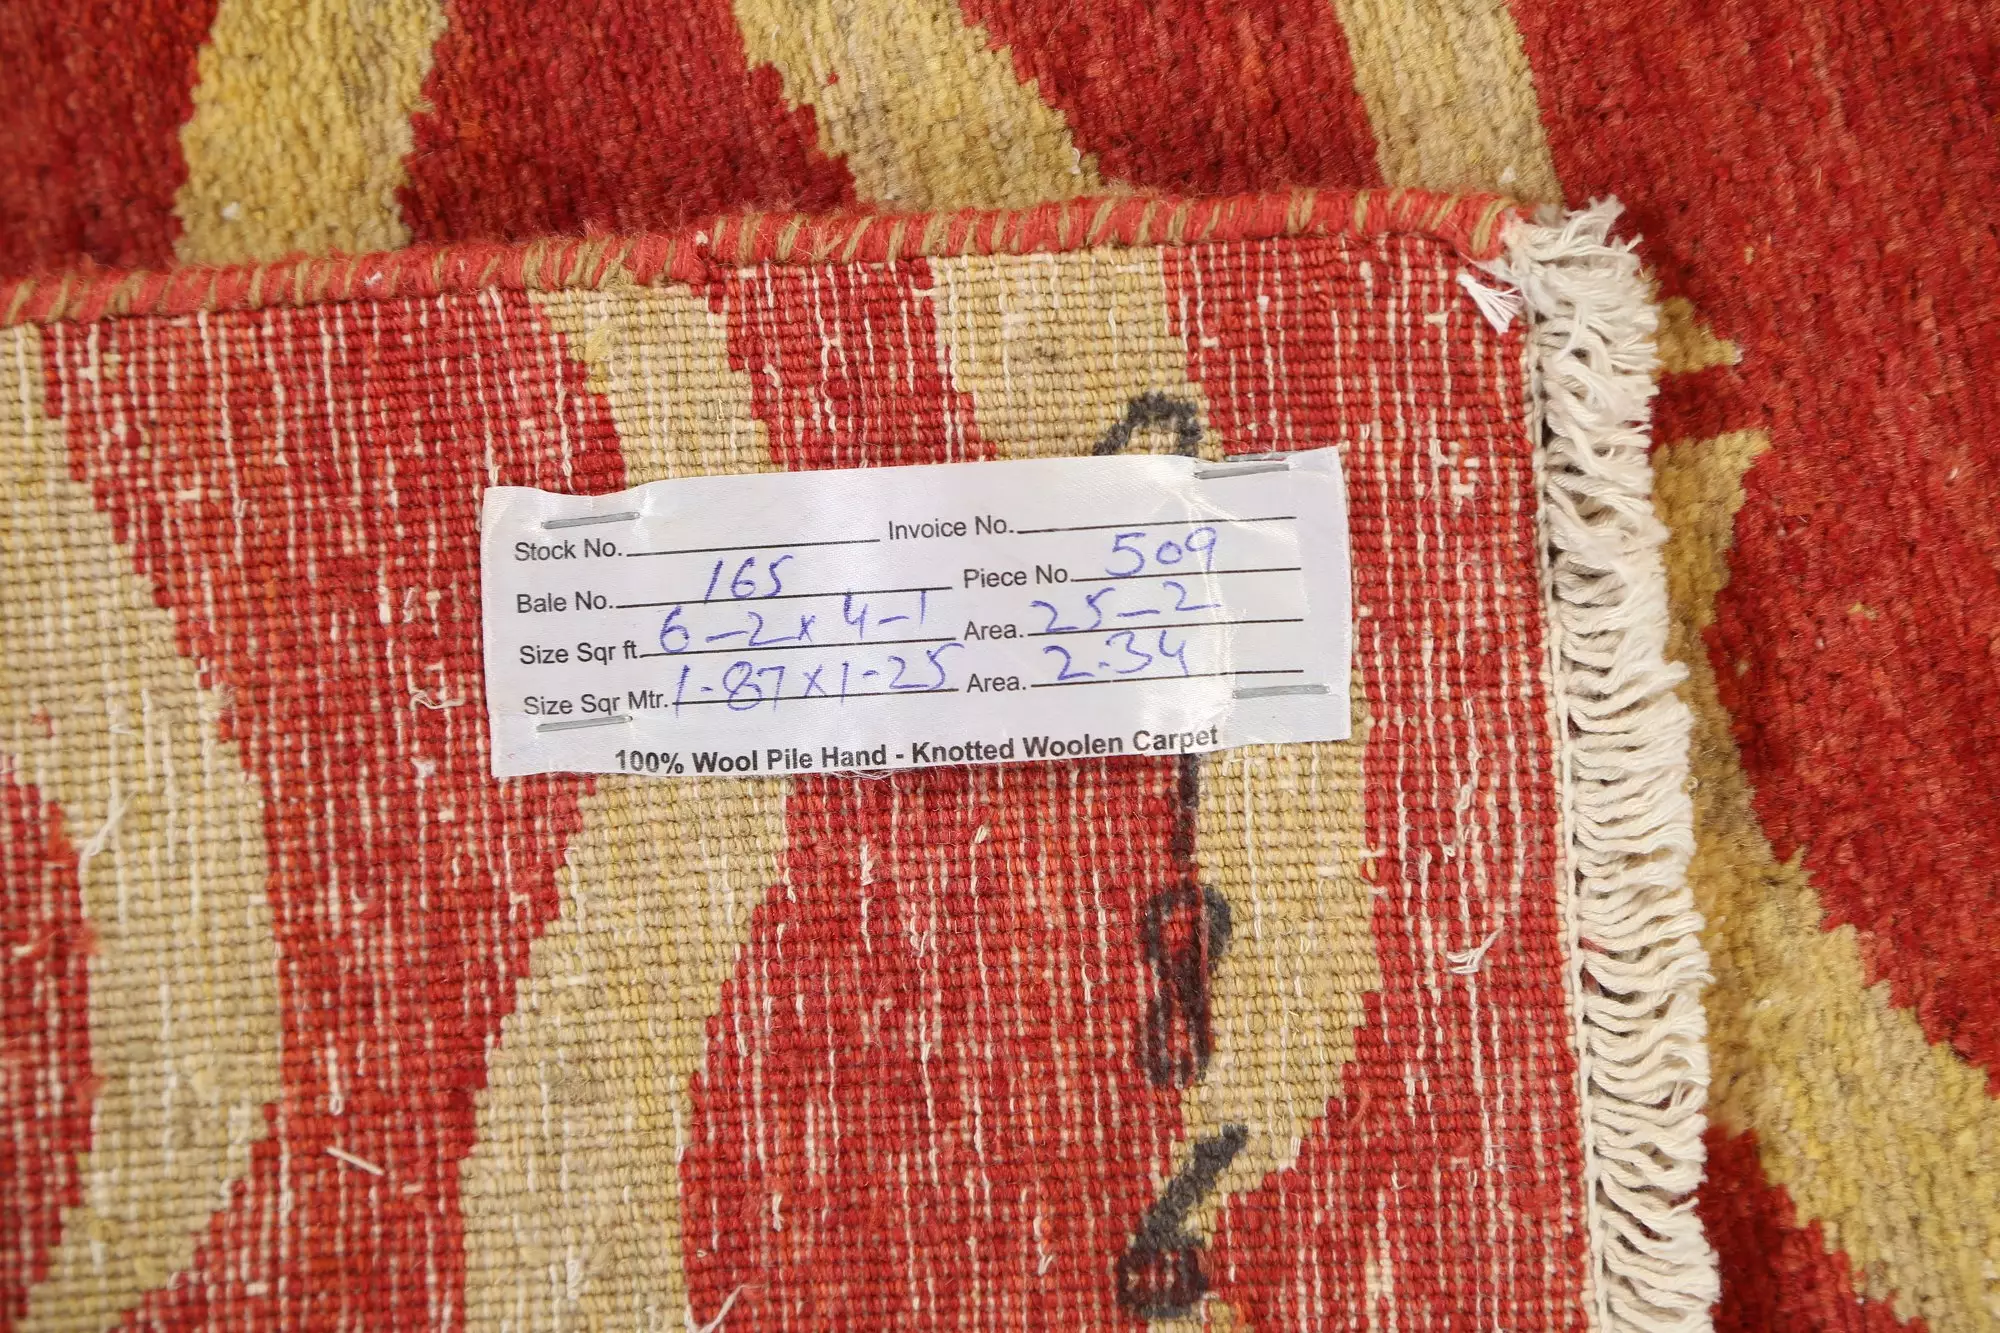 Stock No. Invoice No.
Bale No. 165 Piece No. 509
Size Sqr ft. 6-2x4-1 Area. 25-2
Size Sqr Mtr. 1-87x1-25 Area. 2.34
100% Wool Pile Hand - Knotted Woolen Carpet